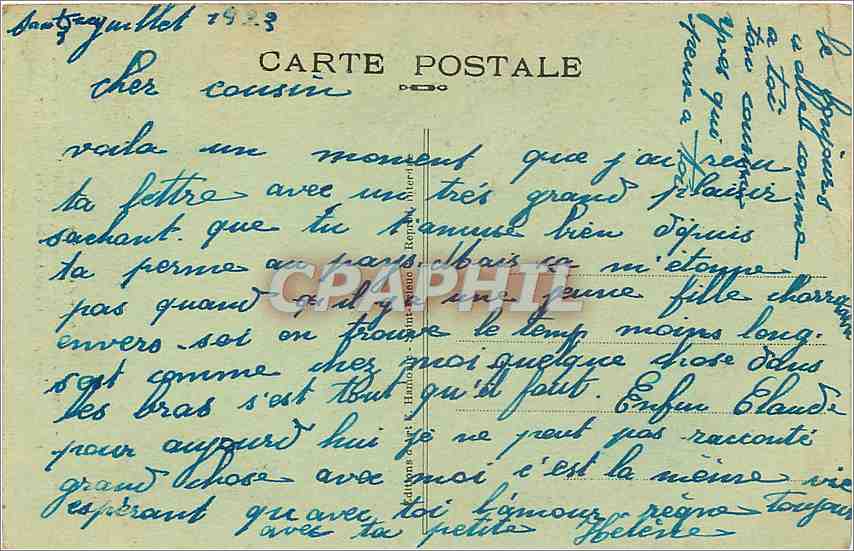 juillet 1923
CARTE POSTALE
cher cousin
voila un moment que j'ai reçu
ta lettre avec un trés grand plaisir
sachant que tu t'amuse bien depuis
ta perme au pays. Mais ça m'étonne
pas quand il y a une jeune fille
envers soi on trouve le temp moins long.
s'est comme chez moi quelque chose dans
les bras s'est tout qu'il faut. Enfin Claude
pour aujourd hui je ne peut pas racconté
grand chose avec moi c'est la même vie
espérant qu avec toi l'amour règne toujours
avec ta petite Hélène
le bonjours
a toi
ton cousin
Yves qui
pense a toi
CPAPHIL
Reprod. interdite